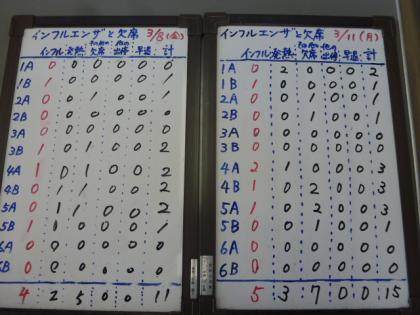 インフルエンザと欠席 3/8(金)
インフル 発熱 その他の欠席 他の出停 早退 計
1A 0 0 0 0 0 0
1B 1 0 0 0 0 1
2A 0 0 1 0 0 1
2B 0 0 0 0 0 0
3A 0 0 0 0 0 0
3B 1 0 1 0 0 2
4A 1 0 1 0 0 2
4B 0 1 1 0 0 2
5A 0 1 1 0 0 2
5B 1 0 0 0 0 1
6A 0 0 0 0 0 0
6B 0 0 0 0 0 0
4 2 5 0 0 11
インフルエンザと欠席 3/11(月)
インフル 発熱 その他の欠席 他の出停 早退 計
1A 0 2 0 0 0 2
1B 1 0 0 0 0 1
2A 0 0 1 0 0 1
2B 0 0 1 0 0 1
3A 0 0 0 0 0 0
3B 0 0 0 0 0 0
4A 2 1 0 0 0 3
4B 1 0 2 0 0 3
5A 1 0 2 0 0 3
5B 0 0 1 0 0 1
6A 0 0 0 0 0 0
6B 0 0 0 0 0 0
5 3 7 0 0 15